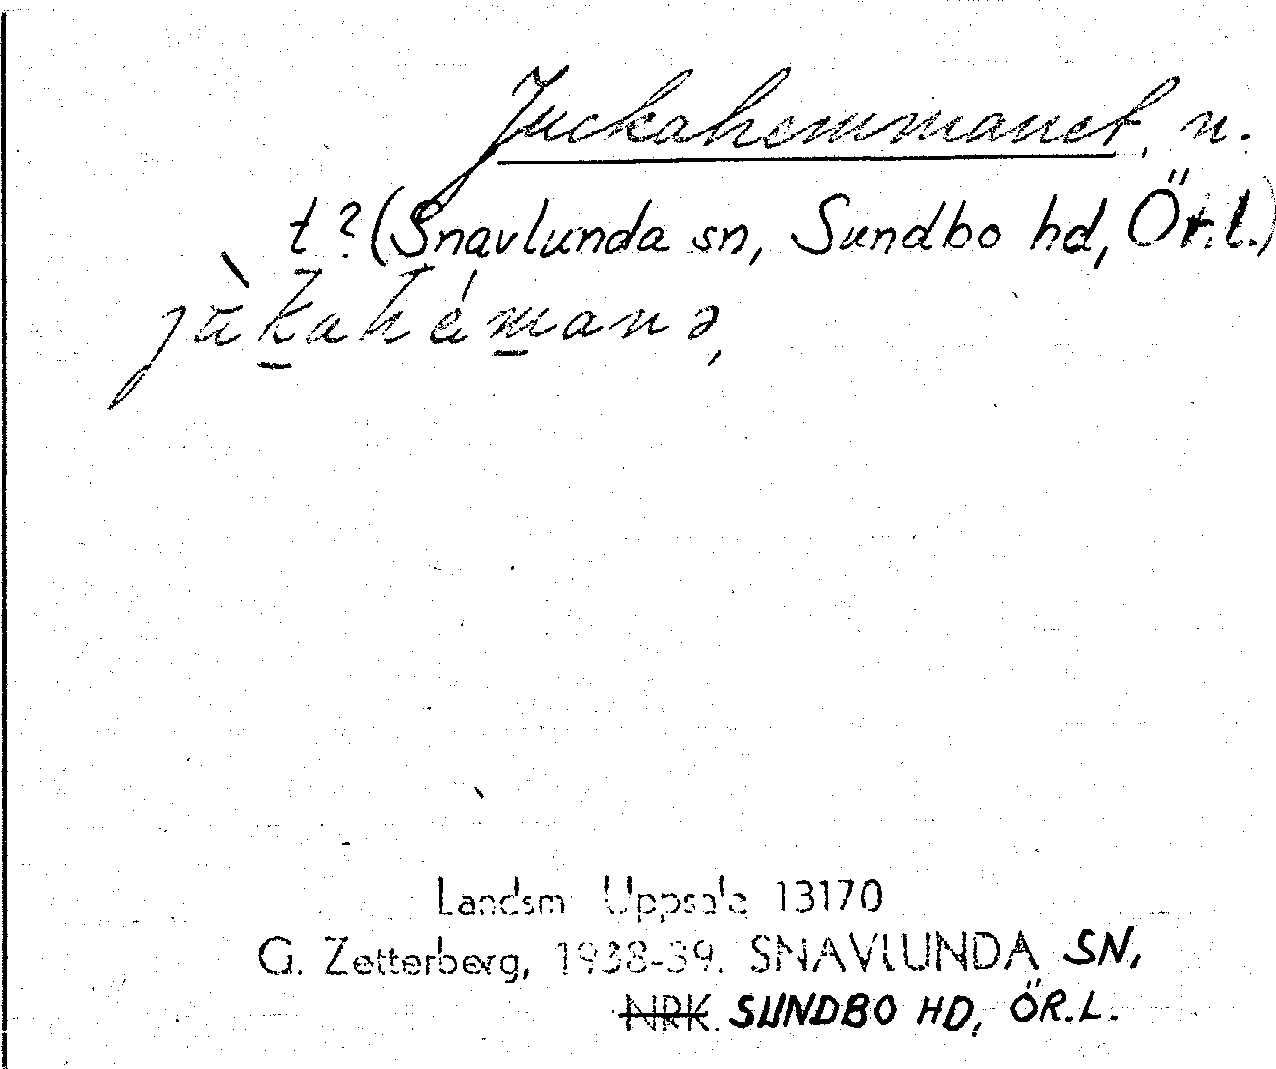 Juckahemmanet, n.
t? (Snavlunda sn, Sundbo hd, Ör.l.)
jàkahémanə,
Landsm Uppsala 13170
G. Zetterberg, 1938-39. SNAVLUNDA SN,
NRK. SUNDBO HD, ÖR.L.